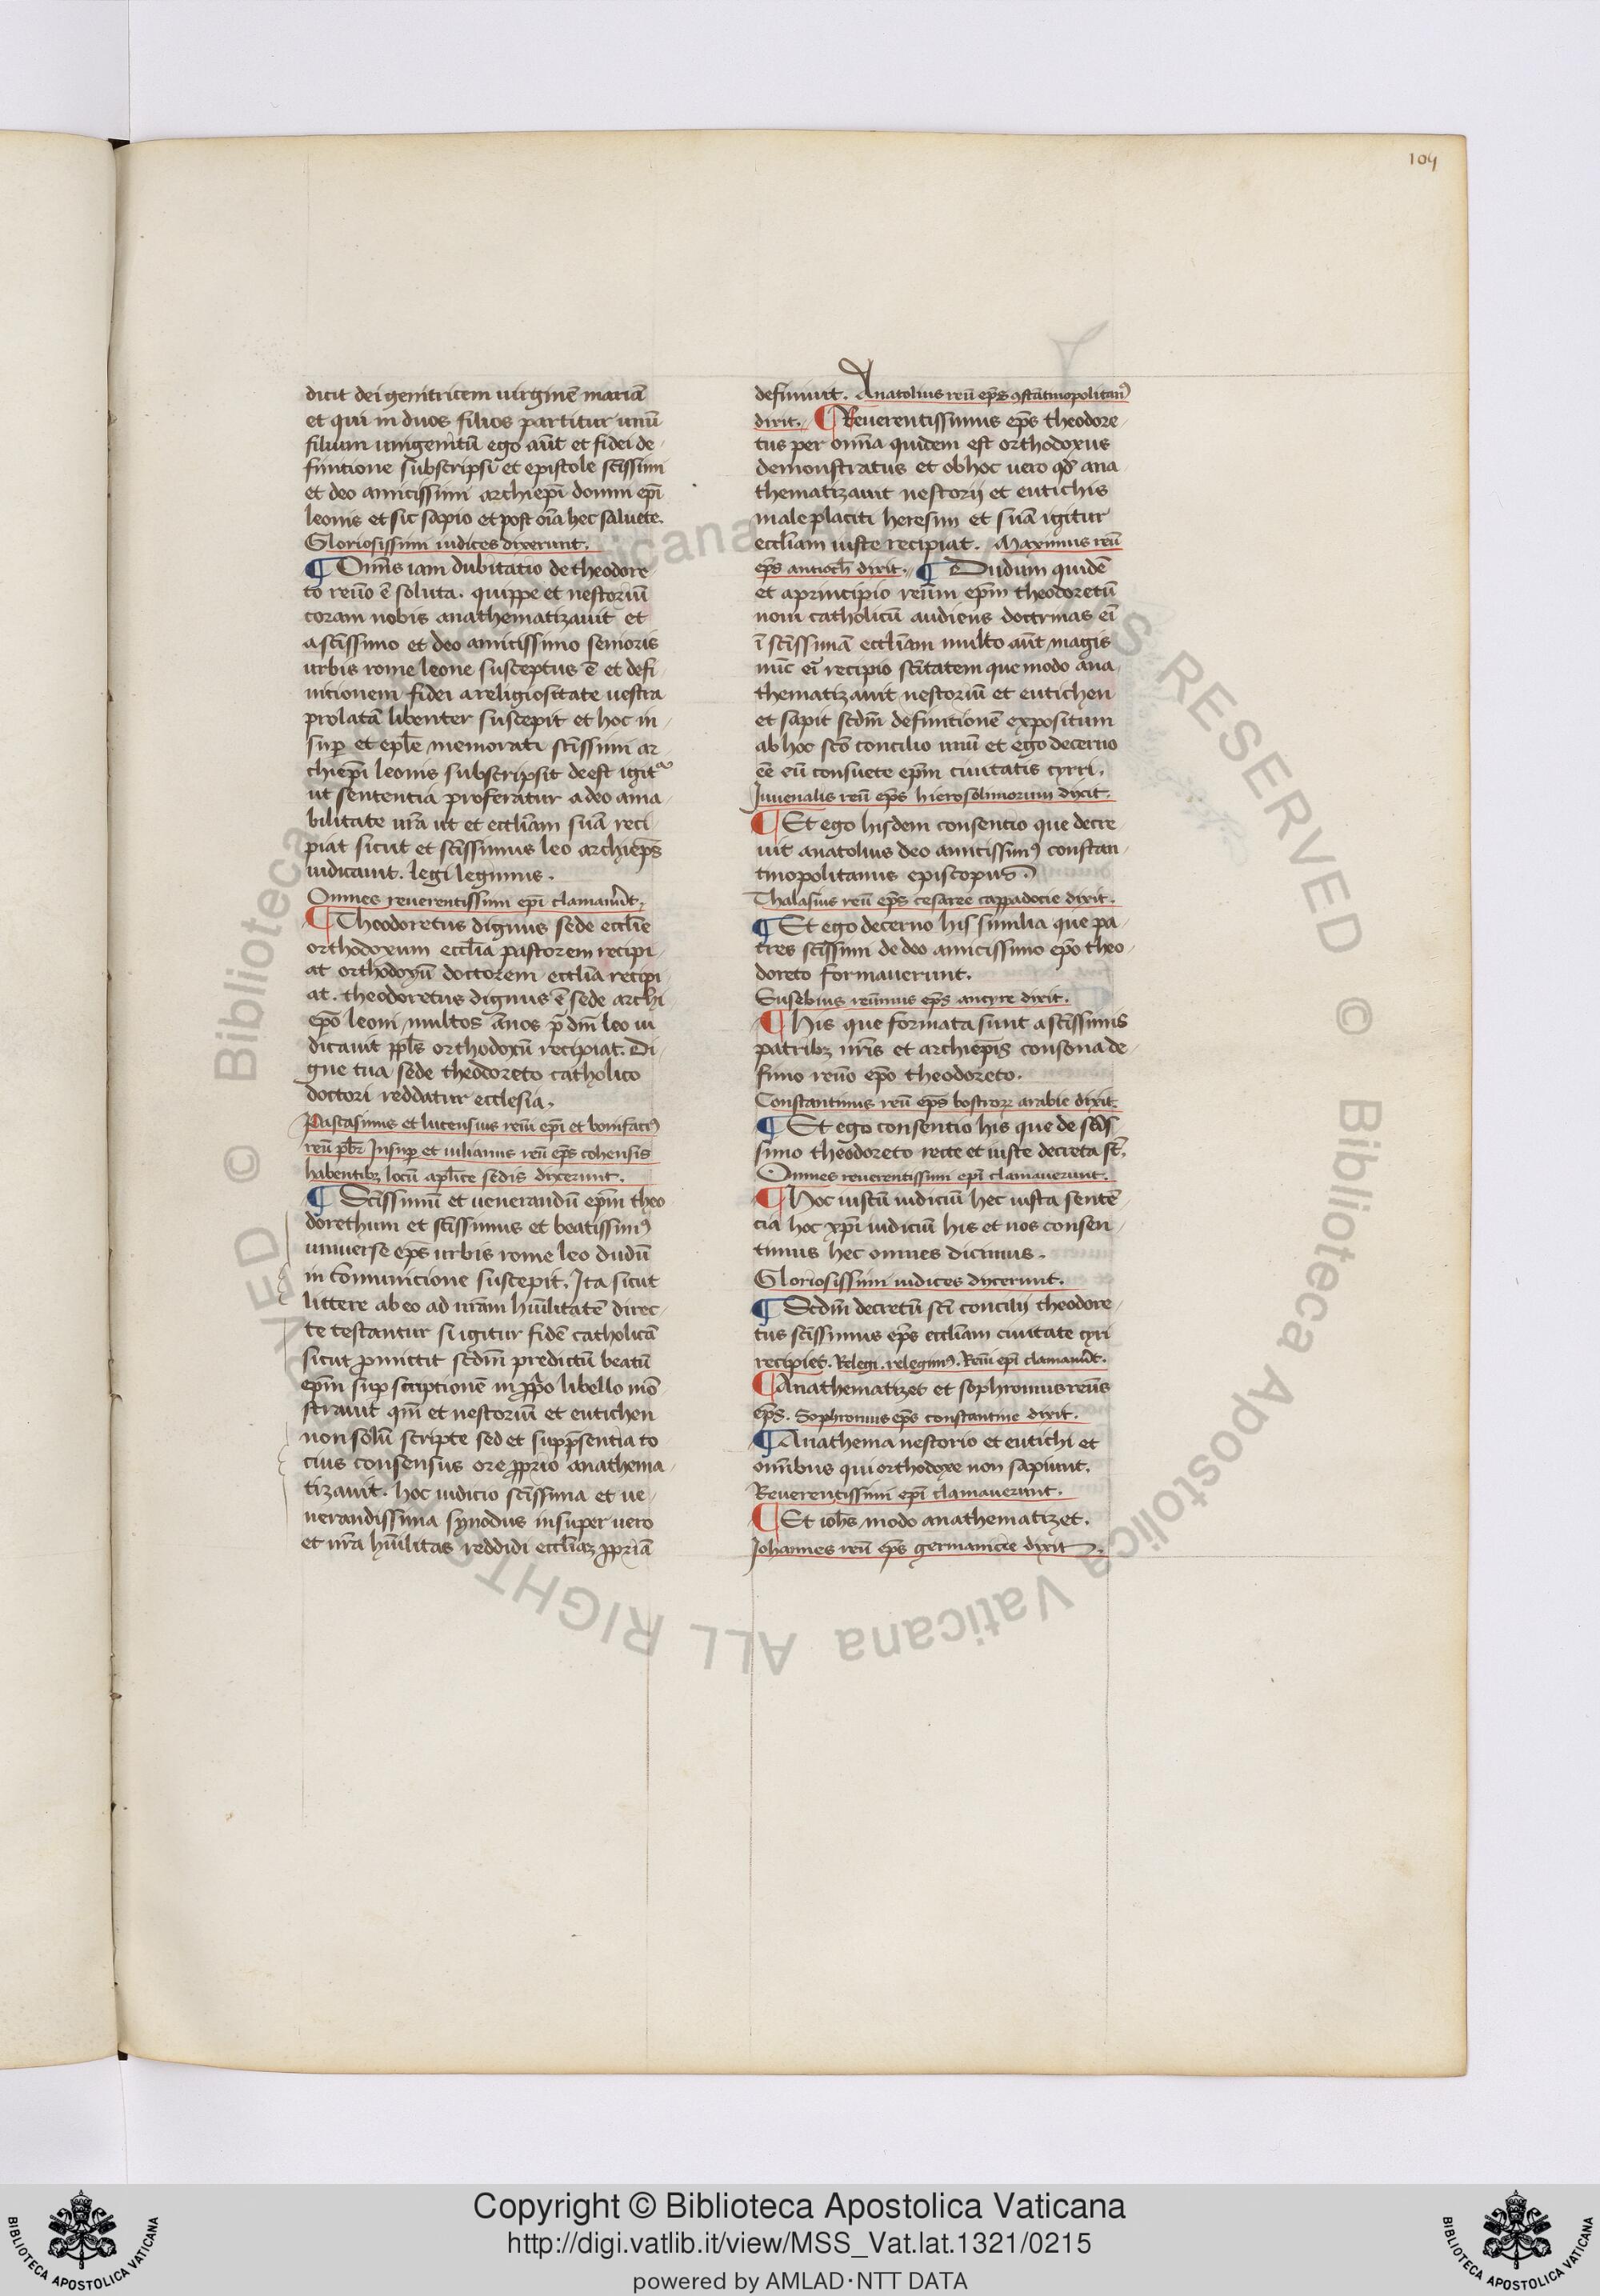 104
dicit dei genitricem uirginē mariā
et qui in duos filios partitur unū
filium unigenitū ego aūt et fidei de-
finitione subscripsi et epistole sc̄issimi
et deo amicissimi archiep̄i domni ep̄i
leonis et sic sapio et post oīa hec saluete.
Gloriosissimi iudices dixerunt.
¶ Om̄is iam dubitatio de theodore-
to reūo ē soluta. quippe et nestoriū
coram nobis anathematizauit et
a sc̄issimo et deo amicissimo senioris
urbis rome leone susceptus ē et defi-
nitionem fidei a religiositate uestra
prolatā libenter suscepit et hoc in-
sup̄ et ep̄le memorati sc̄issimi ar-
chiep̄i leonis subscripsit deest igit᷑
ut sententia proferatur a deo ama-
bilitate ur̄a ut et eccl̄iam suā reci-
piat sicut et sc̄issimus leo archiep̄s
iudicauit. legi legimus.
Omnes reuerentissimi ep̄i clamaūt.
¶ Theodoretus dignus sede eccl̄ie
orthodoxum eccl̄ia pastorem recipi-
at orthodoxū doctorem eccl̄ia recipi-
at. theodoretus dignus ē sede archi-
ep̄o leoni multos ānos p̄ dm̄ leo iu-
dicauit pp̄ls orthodoxū recipiat. Di-
gne tua sede theodoreto catholico
doctori reddatur ecclesia.
Pascasinus et lucensius reuī ep̄i et bonifaci⁹
reū pb̄r Insup̄ et iulianus reū ep̄s cohensis
habentibꝫ locū ap̄lice sedis dixerunt.
¶ Sc̄issimū et uenerandū ep̄m theo
dorethum et sc̄issimus et beatissim⁹
uniuerse ep̄s urbis rome leo dudū
in comunicione suscepit. Ita sicut
littere ab eo ad nr̄am hūilitatē direc-
te testantur si igitur fidē catholicā
sicut ꝓmittit sc̄dm predictū beatū
ep̄m sup̄ scriptionē in ꝓp̄o libello mō-
strauit qm̄ et nestoriū et eutichen
non solū scripte sed et sup p̄sentia to
cius consensus ore ꝓprio anathema-
tizauit. hoc iudicio sc̄issima et ue-
nerandissima synodus insuper uero
et nr̄a hūilitas reddidi eccl̄iaꝫ ꝓpriā
definiuit. Anatolius reū ep̄s ꝯstātinopolitan⁹
dixit. ¶ Reuerentissimus ep̄s theodore-
tus per om̄ia quidem est orthodoxus
demonstratus et ob hoc uero qd̄ ana-
thematizauit nestorij et eutichis
male placiti heresim et suā igitur
eccl̄iam iuste recipiat. Maximus reū
ep̄s antioch̄ dixit. ¶ Dudum quidē
et a principio reūm ep̄m theodoretū
noui catholicū audiens doctrinas eī
ī sc̄issimā eccl̄iam multo aūt magis
nūc eī recipio sc̄itatem que modo ana-
thematizauit nestoriū et eutichen
et sapit sc̄dm definitionē expositum
ab hoc sc̄o concilio unū et ego decerno
eē eū consuete ep̄m ciuitatis cyrri.
Iuuenalis reū ep̄s hierosolimorum dixit.
¶ Et ego hisdem consencio que decre-
uit anatolius deo amicissim⁹ constan-
tinopolitanus episcopus.
Thalasius reū ep̄s cesaree cappadocie dixit.
¶ Et ego decerno his similia que pa-
tres sc̄issimi de deo amicissimo ep̄o theo-
doreto formauerunt.
Eusebius reūmus ep̄s ancyre dixit.
¶ His que formata sunt a sc̄issimis
patribꝫ nr̄is et archiep̄is consona de-
finio reūo ep̄o theodoreto.
Constantinus reū ep̄s bostroꝝ arabie dixit.
¶ Et ego consentio his que de sc̄is-
simo theodoreto recte et iuste decreta st̄.
Omnes reuerentissimi ep̄i clamauerunt.
¶ Hoc iustū iudiciū hec iusta sentē
cia hoc xp̄i iudiciū his et nos consen-
timus hec omnes dicimus.
Gloriosissimi iudices dixerunt.
¶ Sc̄dm decretū sc̄i concilij theodore-
tus sc̄issimus ep̄s eccl̄iam ciuitate cyri
recipiet. Relegi. relegim⁹. Reuī ep̄i clamaūt.
¶ Anathematizet et sophronius reūs
ep̄s. Sophronius ep̄s constantine dixit.
¶ Anathema nestorio et eutichi et
om̄ibus qui orthodoxe non sapiunt.
Reuerentissimi ep̄i clamauerunt.
¶ Et ioh̄s modo anathematizet.
Iohannes reū ep̄s germanicie dixit.
© Biblioteca Apostolica Vaticana ALL RIGHTS RESERVED
Copyright © Biblioteca Apostolica Vaticana
http://digi.vatlib.it/view/MSS_Vat.lat.1321/0215
powered by AMLAD·NTT DATA
BIBLIOTECA APOSTOLICA VATICANA
BIBLIOTECA APOSTOLICA VATICANA